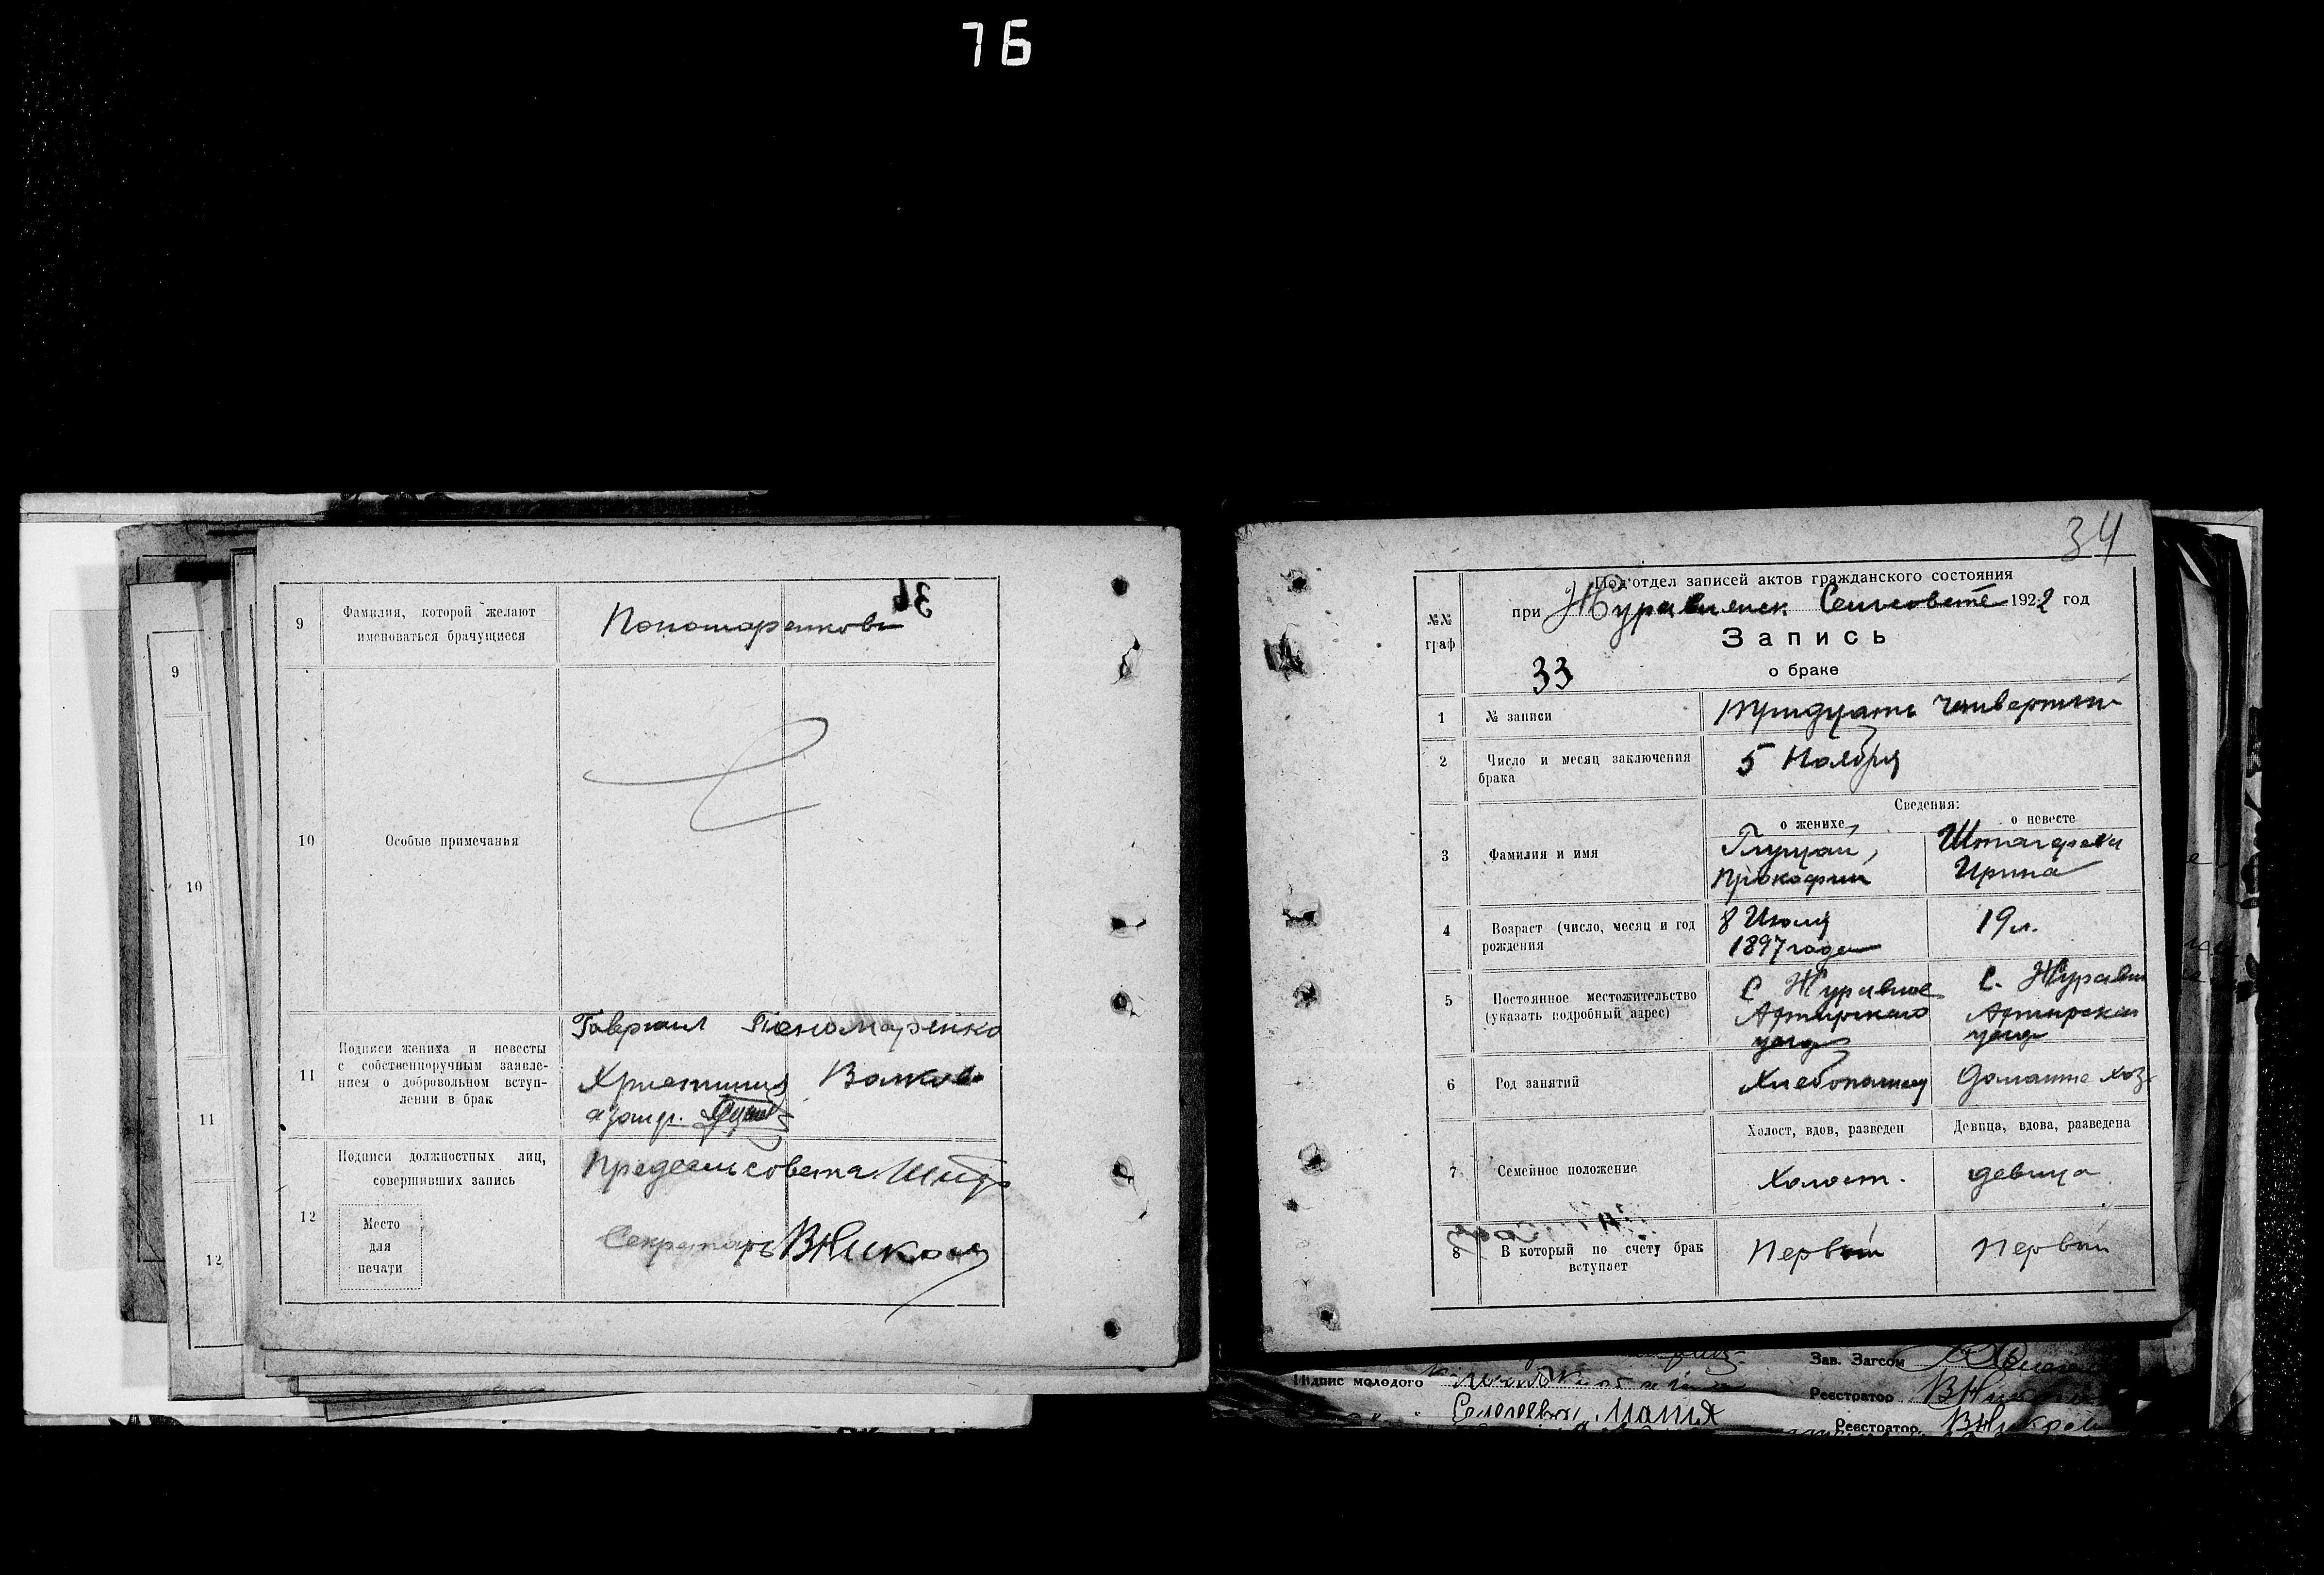 76
9
10
11
12
34
9
Фамилия, которой желают
именоваться брачущиеся
Пономаренковы
10
Особые примечанья
11
Подписи жениха и невесты
с собственноручным заявле-
нием о добровольном вступ-
лении в брак
Гавриил Пономаренко
Христиния
12
Подписи должностных лиц,
совершивших запись
Место
для
печати
Предсельсовета
Секретарь
34
№№
граф
Под'отдел записей актов гражданского состояния
при Журавленск Сельсовете 1922 год
Запись
о браке
33
1
№ записи
тридцать четвертый
2
Число и месяц заключения
брака
5 Ноября
Сведения:
о женихе
о невесте
3
Фамилия и имя
Прокофий
Ирина
4
Возраст (число, месяц и год
рождения
8 Июля
1897 года
19 л.
5
Постоянное местожительство
(указать подробный адрес)
С Журавное
Ахтырского
уезда
С. Журавн
Ахтырского
уезд
6
Род занятий
Хлебопашец
Домашне хоз.
7
Семейное положение
Холост, вдов, разведен
Девица, вдова, разведена
Холост.
девица
8
В который по счету брак
вступает
Первый
Первый
Підпис молодого
Зав. Загсом
Реєстратор
Реєстратор